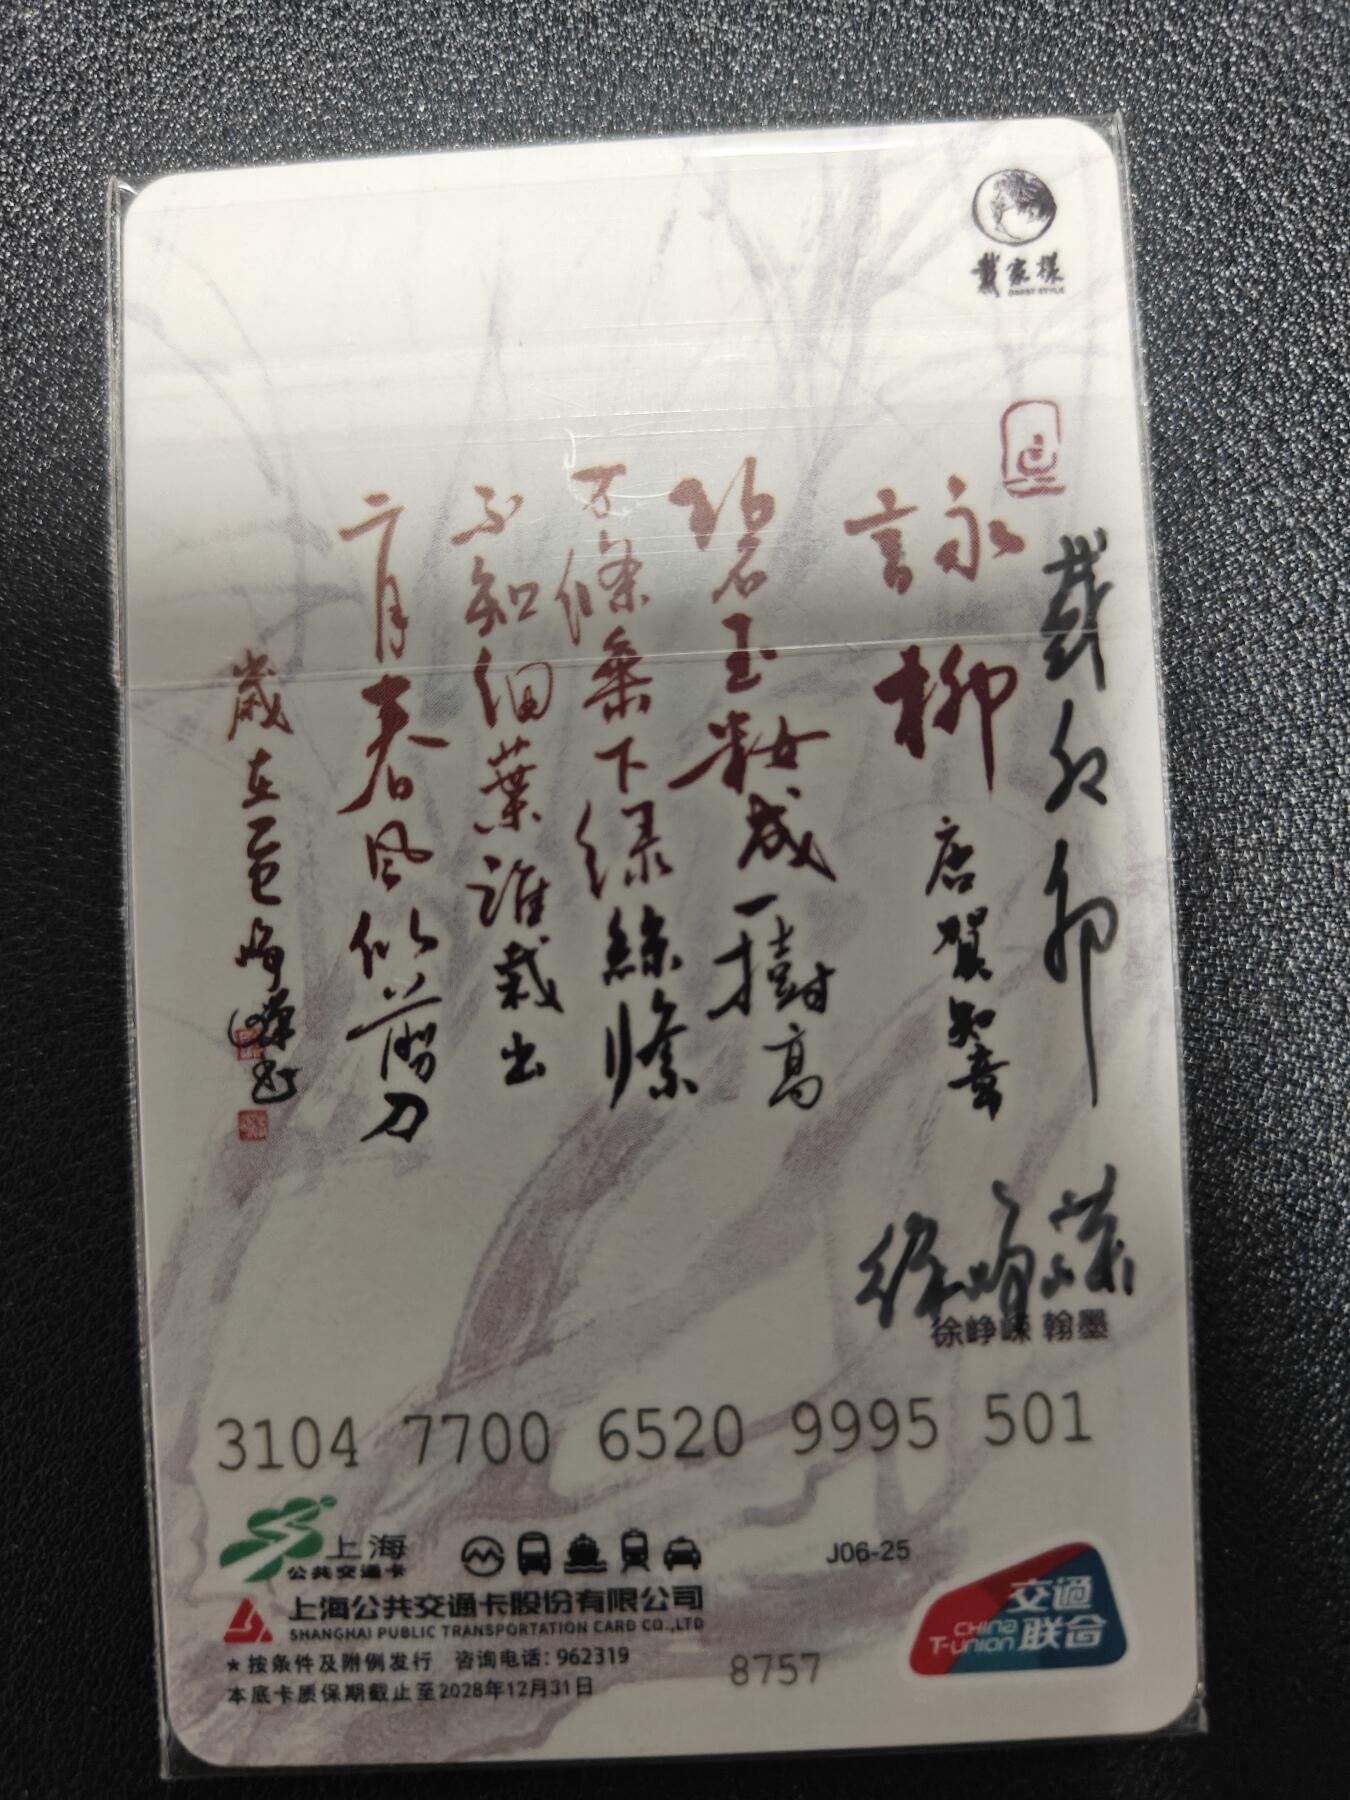 戴家樣
詠柳
唐 賀知章
碧玉粧成一樹高
万條垂下绿絲絛
不知细葉誰裁出
二月春风似剪刀
歲在
徐峥嵘 翰墨
3104 7700 6520 9995 501
上海
公共交通卡
J06-25
上海公共交通卡股份有限公司
SHANGHAI PUBLIC TRANSPORTATION CARD CO.,LTD
★按条件及附例发行 咨询电话：962319
本底卡质保期截止至2028年12月31日
8757
交通
联合
CHINA
T-UNION